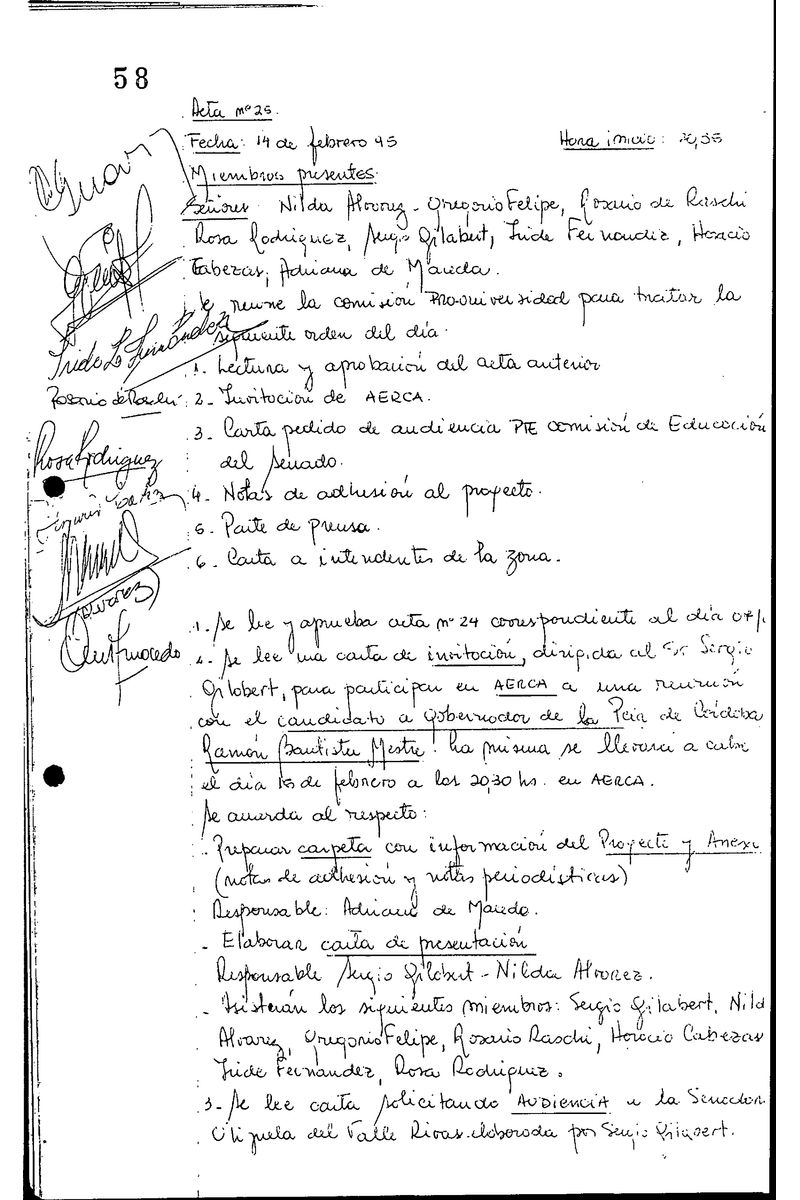 58
Acta nº 25.
Fecha: 14 de febrero 95 Hora inicio: 20,35
Miembros presentes.
Señores Nilda Alvarez - Gregorio Felipe, Rosario de Raschi
Rosa Rodriguez, Sergio Gilabert, Iride Fernandez, Horacio
Cabezas, Adriana de Maceda.
Se reune la comisión Pro-universidad para tratar la
siguiente orden del día.
1. Lectura y aprobación del acta anterior
2. Invitación de AERCA.
3. Carta pedido de audiencia PTE comisión de Educación
del Senado.
4. Notas de adhesión al proyecto.
5. Parte de prensa.
6. Carta a intendentes de la zona.
Iride L. Fernández
Rosario de Raschi
Rosa Rodriguez
(Alvarez)
1. Se lee y aprueba acta nº 24 correspondiente al día 07/
2. Se lee una carta de invitación, dirigida al Sr Sergio
Gilabert, para participar en AERCA a una reunión
con el candidato a Gobernador de la Pcia de Córdoba
Ramón Bautista Mestre. La misma se llevará a cabo
el día de febrero a las 20,30 hs. en AERCA.
Se acuerda al respecto:
- Preparar carpeta con información del Proyecto y Anexo
(notas de adhesión y notas periodísticas)
Responsable: Adriana de Macedo.
- Elaborar carta de presentación
Responsable Sergio Gilabert - Nilda Alvarez.
- Asistirán los siguientes miembros: Sergio Gilabert, Nild
Alvarez, Gregorio Felipe, Rosario Raschi, Horacio Cabezas
Iride Fernandez, Rosa Rodriguez.
3- Se lee carta solicitando AUDIENCIA a la Senador
del Valle Rivas elaborada por Sergio Gilabert.